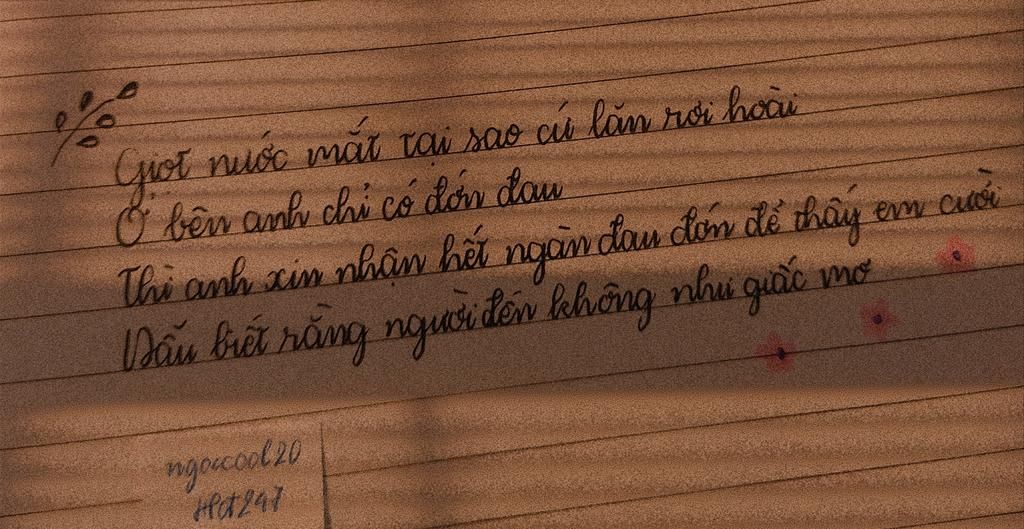 Giọt nước mắt tại sao cứ lăn rơi hoài
Ở bên anh chỉ có đớn đau
Thì anh xin nhận hết ngàn đau đớn để thấy em cười
Dẫu biết rằng người đến không như giấc mơ
ngoccool20
Hht247